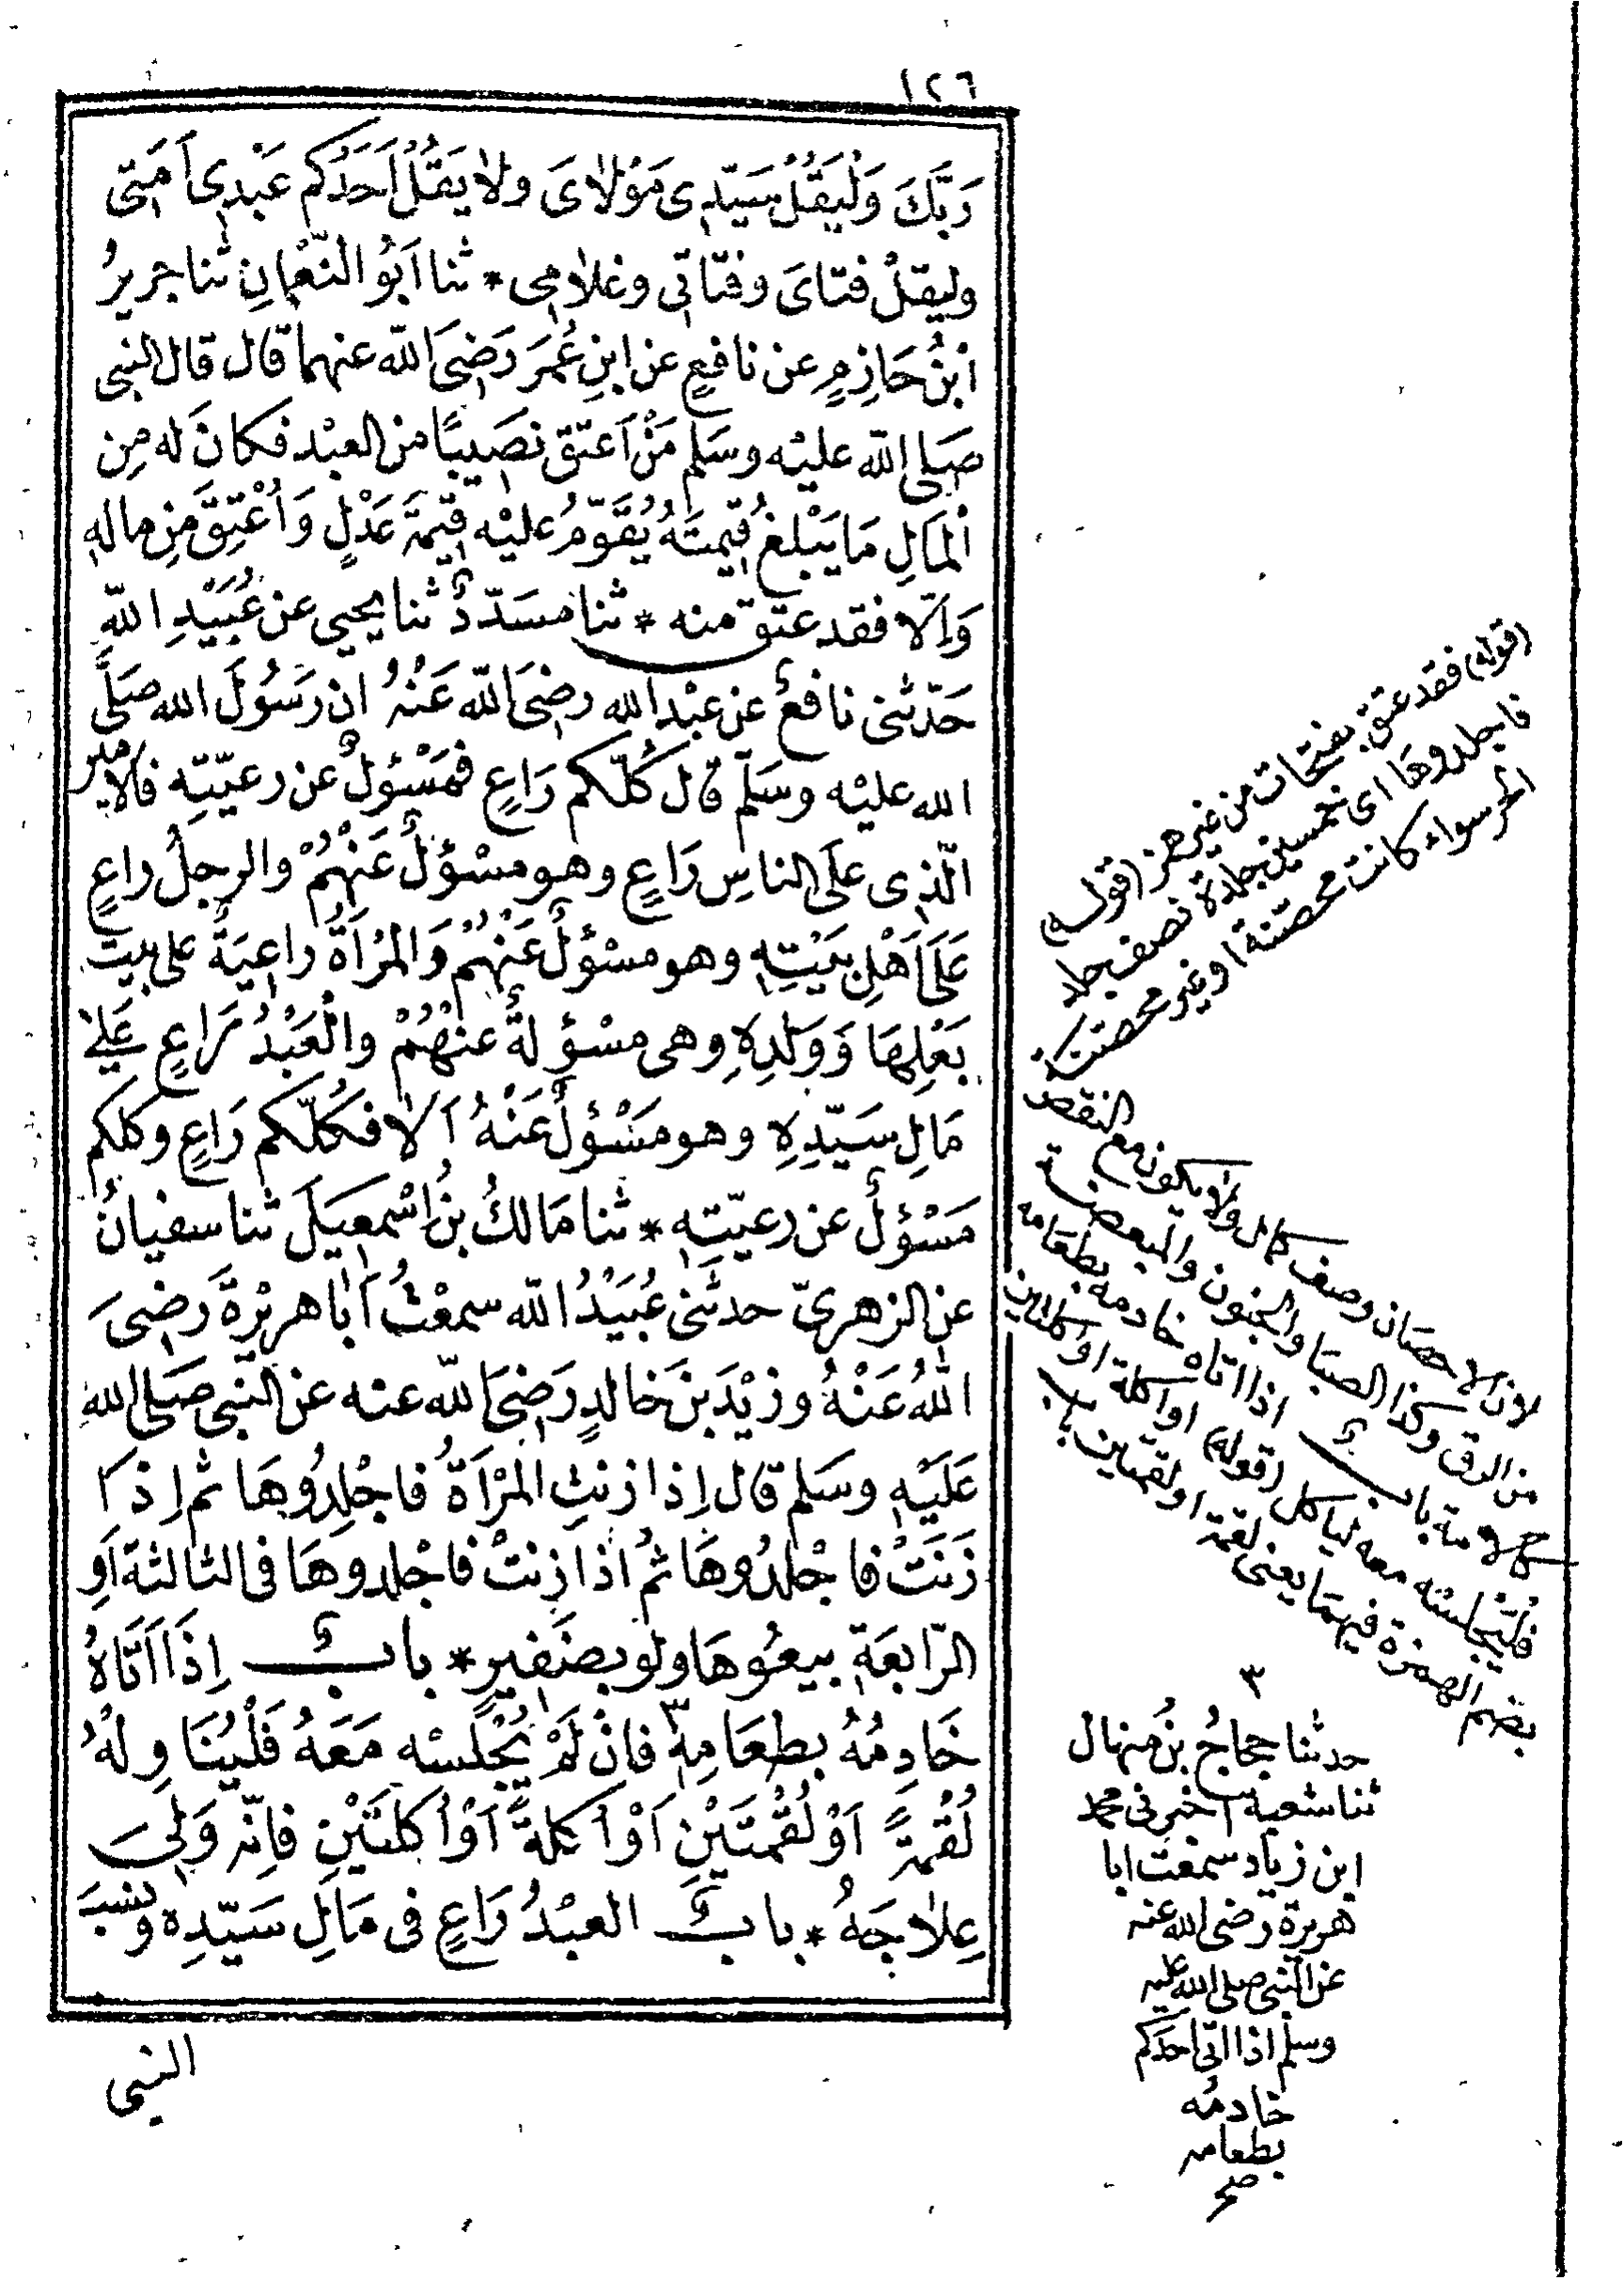 ١٢٦
رَبَّكَ وَلْيَقُلْ سَيِّدِى مَوْلَاىَ ولا يَقُلْ اَحَدُكُم عَبْدِى اَمَتِى
وليقلْ فتاىَ وفتَاتِى وغلامِى * ثنا اَبُو النُّعْمَانِ ثنا جريرُ
ابْنُ حَازِمٍ عن نافعٍ عن ابنِ عُمَرَ رَضِىَ اللّه عنهما قال قال النبى
صَلى اللّه عليْه وسَلم مَنْ اَعتَق نصَيبًا من العبْد فكانَ له مِن
الْمَالِ مَا يَبْلغُ قِيمتَهُ يُقَوَّمُ عليْه قِيمَةَ عَدْلٍ وَاُعْتِقَ مِن مالهِ
وَاِلّا فقد عتق منه * ثنا مسَدّدٌ ثنا يحيى عن عُبَيْدِ اللّهِ
حَدّثنى نافعٌ عن عبْد الله رضِىَ اللّه عَنْهُ ان رَسُولَ الله صَلَّى
الله عليْه وسَلّم قال كُلّكم رَاعٍ فمَسْؤلٌ عن رعيّتِه فالامير
الّذِى عَلَى الناسِ رَاعٍ وهو مسْؤلٌ عَنْهُمْ والرجلُ راعٍ
عَلَى اَهْلِ بَيْتِهِ وهو مسْؤلٌ عَنْهُمْ وَالمَرْاَةُ راعِيَةٌ على بيت
بَعْلِهَا وَوَلَدِهِ وهى مسْؤلةٌ عنهُمْ والْعَبْدُ رَاعٍ عَلى
مَالِ سَيِّدِهِ وهو مَسْؤلٌ عَنْهُ اَلا فكُلّكم رَاعٍ وكلكم
مَسْؤلٌ عن رعيّتِهِ * ثنا مَالكُ بنُ اسْمعِيلَ ثنا سفيانُ
عن الزهرىّ حدثنى عُبَيْدُ اللّه سمعْتُ اَبَا هريْرةَ رَضِىَ
اللهُ عَنْهُ وزيْدَ بنَ خَالدٍ رَضِىَ اللّه عنه عن النّبى صَلى اللهِ
عَلَيْهِ وسَلم قال اِذا زنتِ المَرْاَةُ فاجْلِدُوهَا ثم اِذَا
زَنَتْ فاجْلدُوهَا ثمُ اذا زنتْ فاجْلدوهَا فى الثالثةِ اَوِ
الرّابعَةِ بيعُوهَا ولو بضَفِيرٍ * بابٌ اِذَا اَتَاهُ
خَادِمُهُ بطعَامِهِ ٣ فانْ لَمْ يُجْلسْه مَعَهُ فَلْيُنَاوِلْهُ
لُقْمَةً اَوْ لُقْمَتَيْنِ اَوْ اُكلةً اَوْ اُكلتَيْنِ فاِنّه وَلِىَ
عِلاجَهُ * بابٌ العبْدُ رَاعٍ فى مَالِ سَيّدِه ونسَبَ
النبى
(قوله) فقد عتق بفتحات من غير همز (قوله)
فاجلدوها اى خمسين جلدة نصف جلد
الحر سواء كانت محصنة او غير محصنة
لان الاحصان وصف كامل ولا يكون مع النقص
من الرق وكذا الصبا والجنون والبعضة
باب اذا اتاه خادمه بطعامه
فليجلسه معه لياكل (قوله) او اكلة او اكلتين
بضم الهمزة فيهما يعنى لقمة او لقمتين
٣
حدثنا حجاجُ بنُ منهال
ثنا شعبة اخبرنى محمد
ابن زياد سمعت ابا
هريرة رضى الله عنه
عن النبى صلى الله عليه
وسلم اذا اتى احدَكم
خادمُه
بطعامه
صح